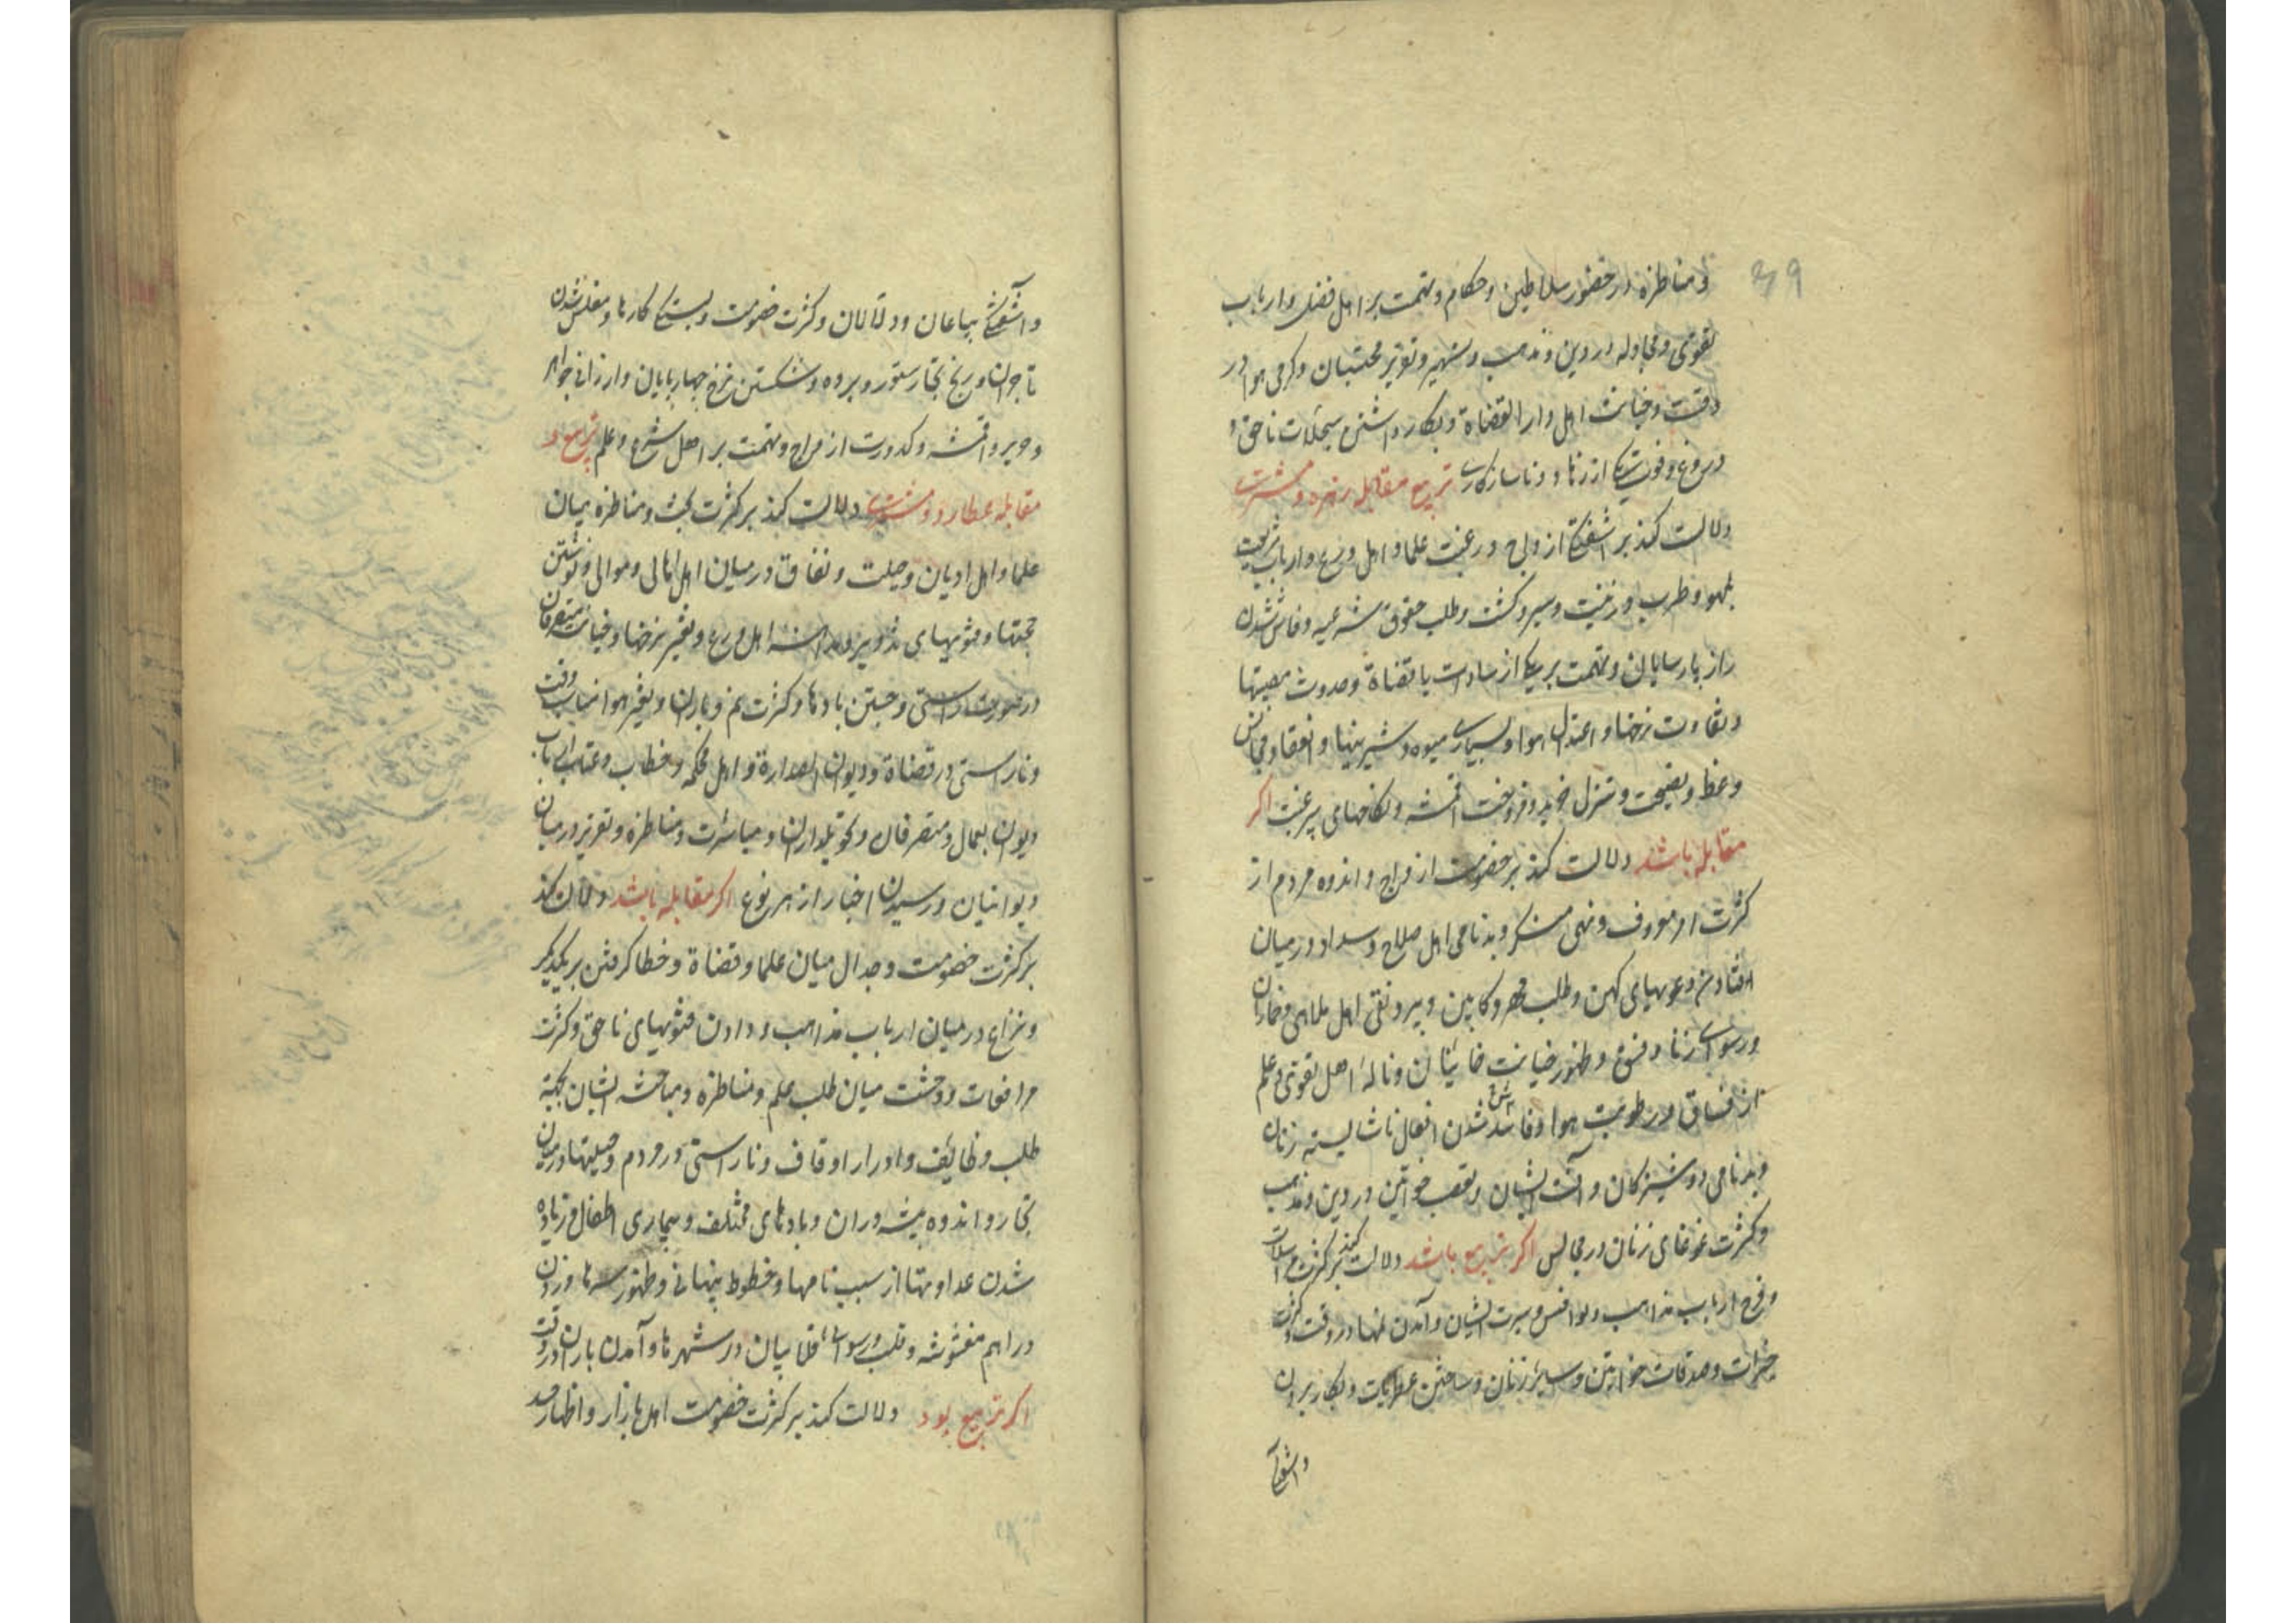 و مناظره در حضور سلاطین و حکام و تهمت بر اهل فضل و ارباب
تقوی و مجادله در دین و مذهب و تشهیر و تعزیر محتسبان و گرمی هوا در
وقت و خیانت اهل دار القضاة و بکار داشتن سجلات ناحق و
دروغ و فوت یکی از زهاد و ناسازکاری تربیع مقابله زهره و مشتری
دلالت کند بر آشفتگی ازواج و رغبت علما و اهل ورع و ارباب شریعت
بلهو و طرب و زینت و سیر و کشت و طلب حقوق شرعیه و فاش شدن
راز پارسایان و تهمت بر یکی از سادات یا قضاة و حدوث مصیبتها
و تفاوت نرخها و اعتدال هوا و بسیاری میوه و شیرینیها و انعقاد مجالس
وعظ و نصیحت و تنزل خرید و فروخت اقمشه و نکاحهای پر رغبت اکر
مقابله باشد دلالت کند بر خصومت ازواج و اندوه مردم از
کثرت امر معروف و نهی منکر و بدنامی اهل صلاح و سداد و در میان
افتادن دعویهای کهن و طلب مهر و کابین و بیرونقی اهل ملاهی و خماران
و رسوایی زنا و فسق و ظهور خیانت خاینان و ناله اهل تقوی و علم
از فساق و رطوبت هوا و فاش شدن افعال ناشایسته زنان
و بدنامی دوشیزکان و آفت ایشان و تعصب خواتین در دین و مذهب
و کثرت غوغای زنان در مجالس اکر تربیع باشد دلالت کند بر کثرت مراسلات
و فرح ارباب مذاهب و توافق سیرت ایشان و آمدن نمها در وقت و کثرت
خیرات و صدقات خواتین و سایر زنان و ساختن عطریات و بکار بردن
و آشفتگی
و آشفتگی بیاعان و دلالان و کثرت خصومت و بستگی کارها و مفلس شدن
تاجران و رنج تجار ستور و برده و شکستن نرخ چهارپایان و ارزانی جواهر
و حریر و اقمشه و کدورت ازواج و تهمت بر اهل شرع و علم تربیع و
مقابله عطارد و مشتری دلالت کند بر کثرت بحث و مناظره میان
علما و اهل ادیان و حیلت و نفاق در میان اهل اهالی و موالی و نوشتن
حجتها و فتویهای تزویر اهل ورع و تغیر نرخها و خیانت متصرفان
در صورت راستی و جستن بادها و کثرت نم و باران و تغیر هوا مناسب وقت
و ناراستی در قضاة و دیوان الصدارة و اهل محکمه و خطاب و عتاب ارباب
دیوان بعمال و متصرفان و تحویلداران و مباشرت و مناظره و تعزیر در میان
دیوانیان و رسیدن اخبار از هر نوع اکر مقابله باشد دلالت کند
بر کثرت خصومت و جدال میان علما و قضاة و خطا کرفتن بر یکدیکر
و نزاع در میان ارباب مذاهب و دادن فتویهای ناحق و کثرت
مرافعات و وحشت میان طلب علم و مناظره و مباحثه ایشان بجهة
طلب وظایف و ادرار اوقاف و ناراستی در مردم و حیلتها در میان
تجار و اندوه پیشه وران و بادهای مختلف و بیماری اطفال و زیاده
شدن عداوتها از سبب نامها و خطوط پنهانی و ظهور سرها و زدن
دراهم مغشوشه و قلب و رسوایی قلابیان در شهرها و آمدن باران در وقت
اکر تربیع بود دلالت کند بر کثرت خصومت اهل بازار و اظهار حسد